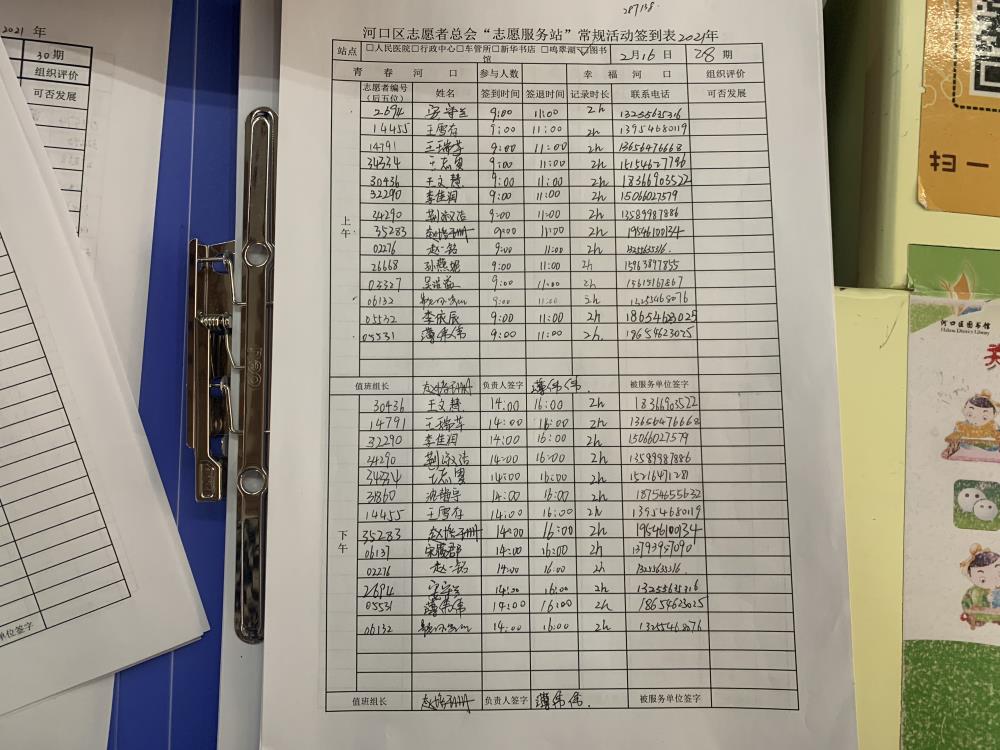 287138.
河口区志愿者总会“志愿服务站”常规活动签到表2021年
站点 □人民医院□行政中心□车管所□新华书店 □鸣翠湖☑图书馆 2月16日 28期
青春河口 参与人数 幸福河口 组织评价
志愿者编号（后五位） 姓名 签到时间 签退时间 记录时长 联系电话 可否发展
上午
2694 9:00 11:00 2h 13255635316
14455 王雪存 9:00 11:00 2h 13954680119
14791 王瑞萍 9:00 11:00 2h 13656476668
34334 9:00 11:00 2h
30436 王文慧 9:00 11:00 2h 18366903522
32290 李佳润 9:00 11:00 2h 15066027579
34290 9:00 11:00 2h 13589987886
35283 9:00 11:00 2h 19546100134
02276 赵一铭 9:00 11:00 2h 13255635316.
26668 孙燕妮 9:00 11:00 2h 15963897855
03327 9:00 11:00 2h 15615167867
06132 9:00 11:00 2h 13255468076
05532 李依辰 9:00 11:00 2h 18654623025
05531 薄伟伟 9:00 11:00 2h. 18654623025
值班组长 负责人签字 薄伟伟. 被服务单位签字
下午
30436 王文慧. 14:00 16:00 2h 18366903522
14791 王瑞萍 14:00 16:00 2h 13656476668
32290 李佳润 14:00 16:00 2h 15066027579
34290 14:00 16:00 2h 13589987886
34334 14:00 16:00 2h 15216471281
31860 14:00 16:00 2h 18754655632
14455 王雪存 14:00 16:00 2h 13954680119
35283 14:00 16:00 2h 19546100134
06137 14:00 16:00 2h 13793957090
02276 赵一铭 14:00 16:00 2h 13255635316.
2694 14:00 16:00 2h 13255635316
05531 薄伟伟 14:00 16:00 2h 18654623025
06132 14:00 16:00 2h 13255468076
值班组长 负责人签字 薄伟伟. 被服务单位签字
2021年
30期
组织评价
可否发展
单位签字
扫一
河口区图书馆
Hekou District Library